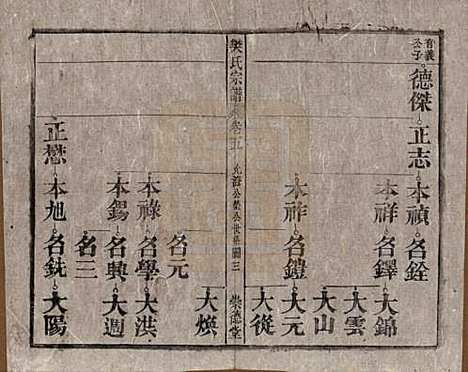 有義公子
德傑 正志 本禎 名銓
本祥 名鐸 大錦
大雲
大山
本祚 名鎧 大元
大從
樊氏宗譜 卷五 世系圖三 崇德堂
大煥
名元
本祿 名學 大洪
本錫 名興 大週
名二
正懋 本旭 名銑 大陽